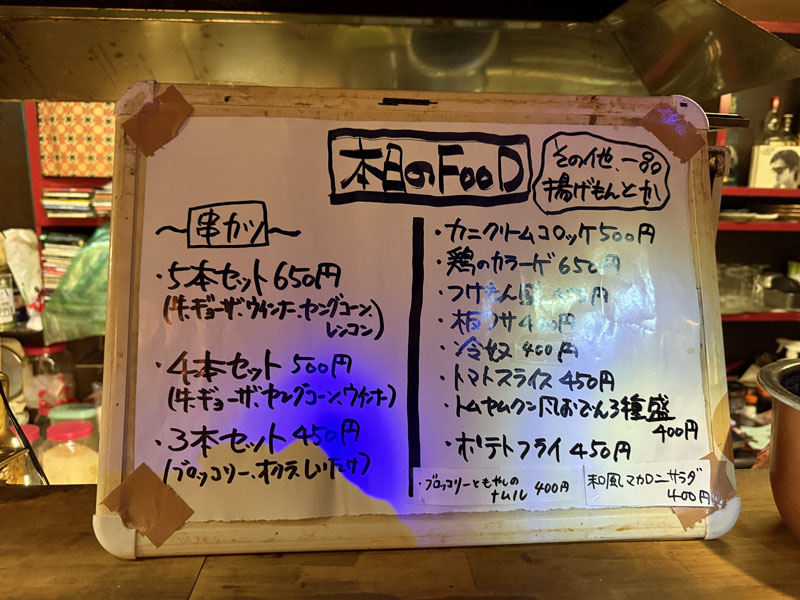 本日のFooD
その他、一品
揚げもんとか
〜串カツ〜
・5本セット 650円
(牛、ギョーザ、ウインナー、ヤングコーン、
レンコン)
・4本セット 500円
(牛、ギョーザ、ヤングコーン、ウインナー)
・3本セット 450円
(ブロッコリー、オクラ、しいたけ)
・カニクリームコロッケ 500円
・鶏のカラアーゲ 650円
・つけもん
・板ワサ 400円
・冷奴 400円
・トマトスライス 450円
・トムヤムクン風おでん3種盛
400円
・ポテトフライ 450円
・ブロッコリーともやしの
ナムル 400円
和風マカロニサラダ
400円